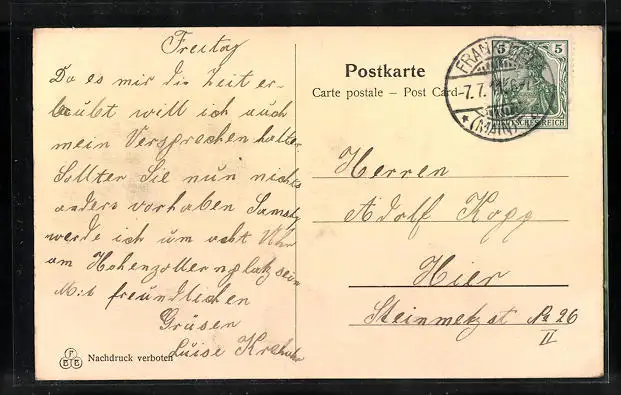 Freitag
Da es mir die Zeit er-
laubt will ich auch
mein Versprechen halten
Sollten Sie nun nichts
anders vorhaben Samstg
werde ich um acht Uhr
am Hohenzollernplatz sein
Mit freundlichen
Grüsen
Luise
Nachdruck verboten
Postkarte
Carte postale – Post Card
FRANKFURT
7.7.
* (MAIN)
5 5
DEUTSCHES REICH
Herren
Adolf Kopp
Hier
Steinmetzst No 26
II